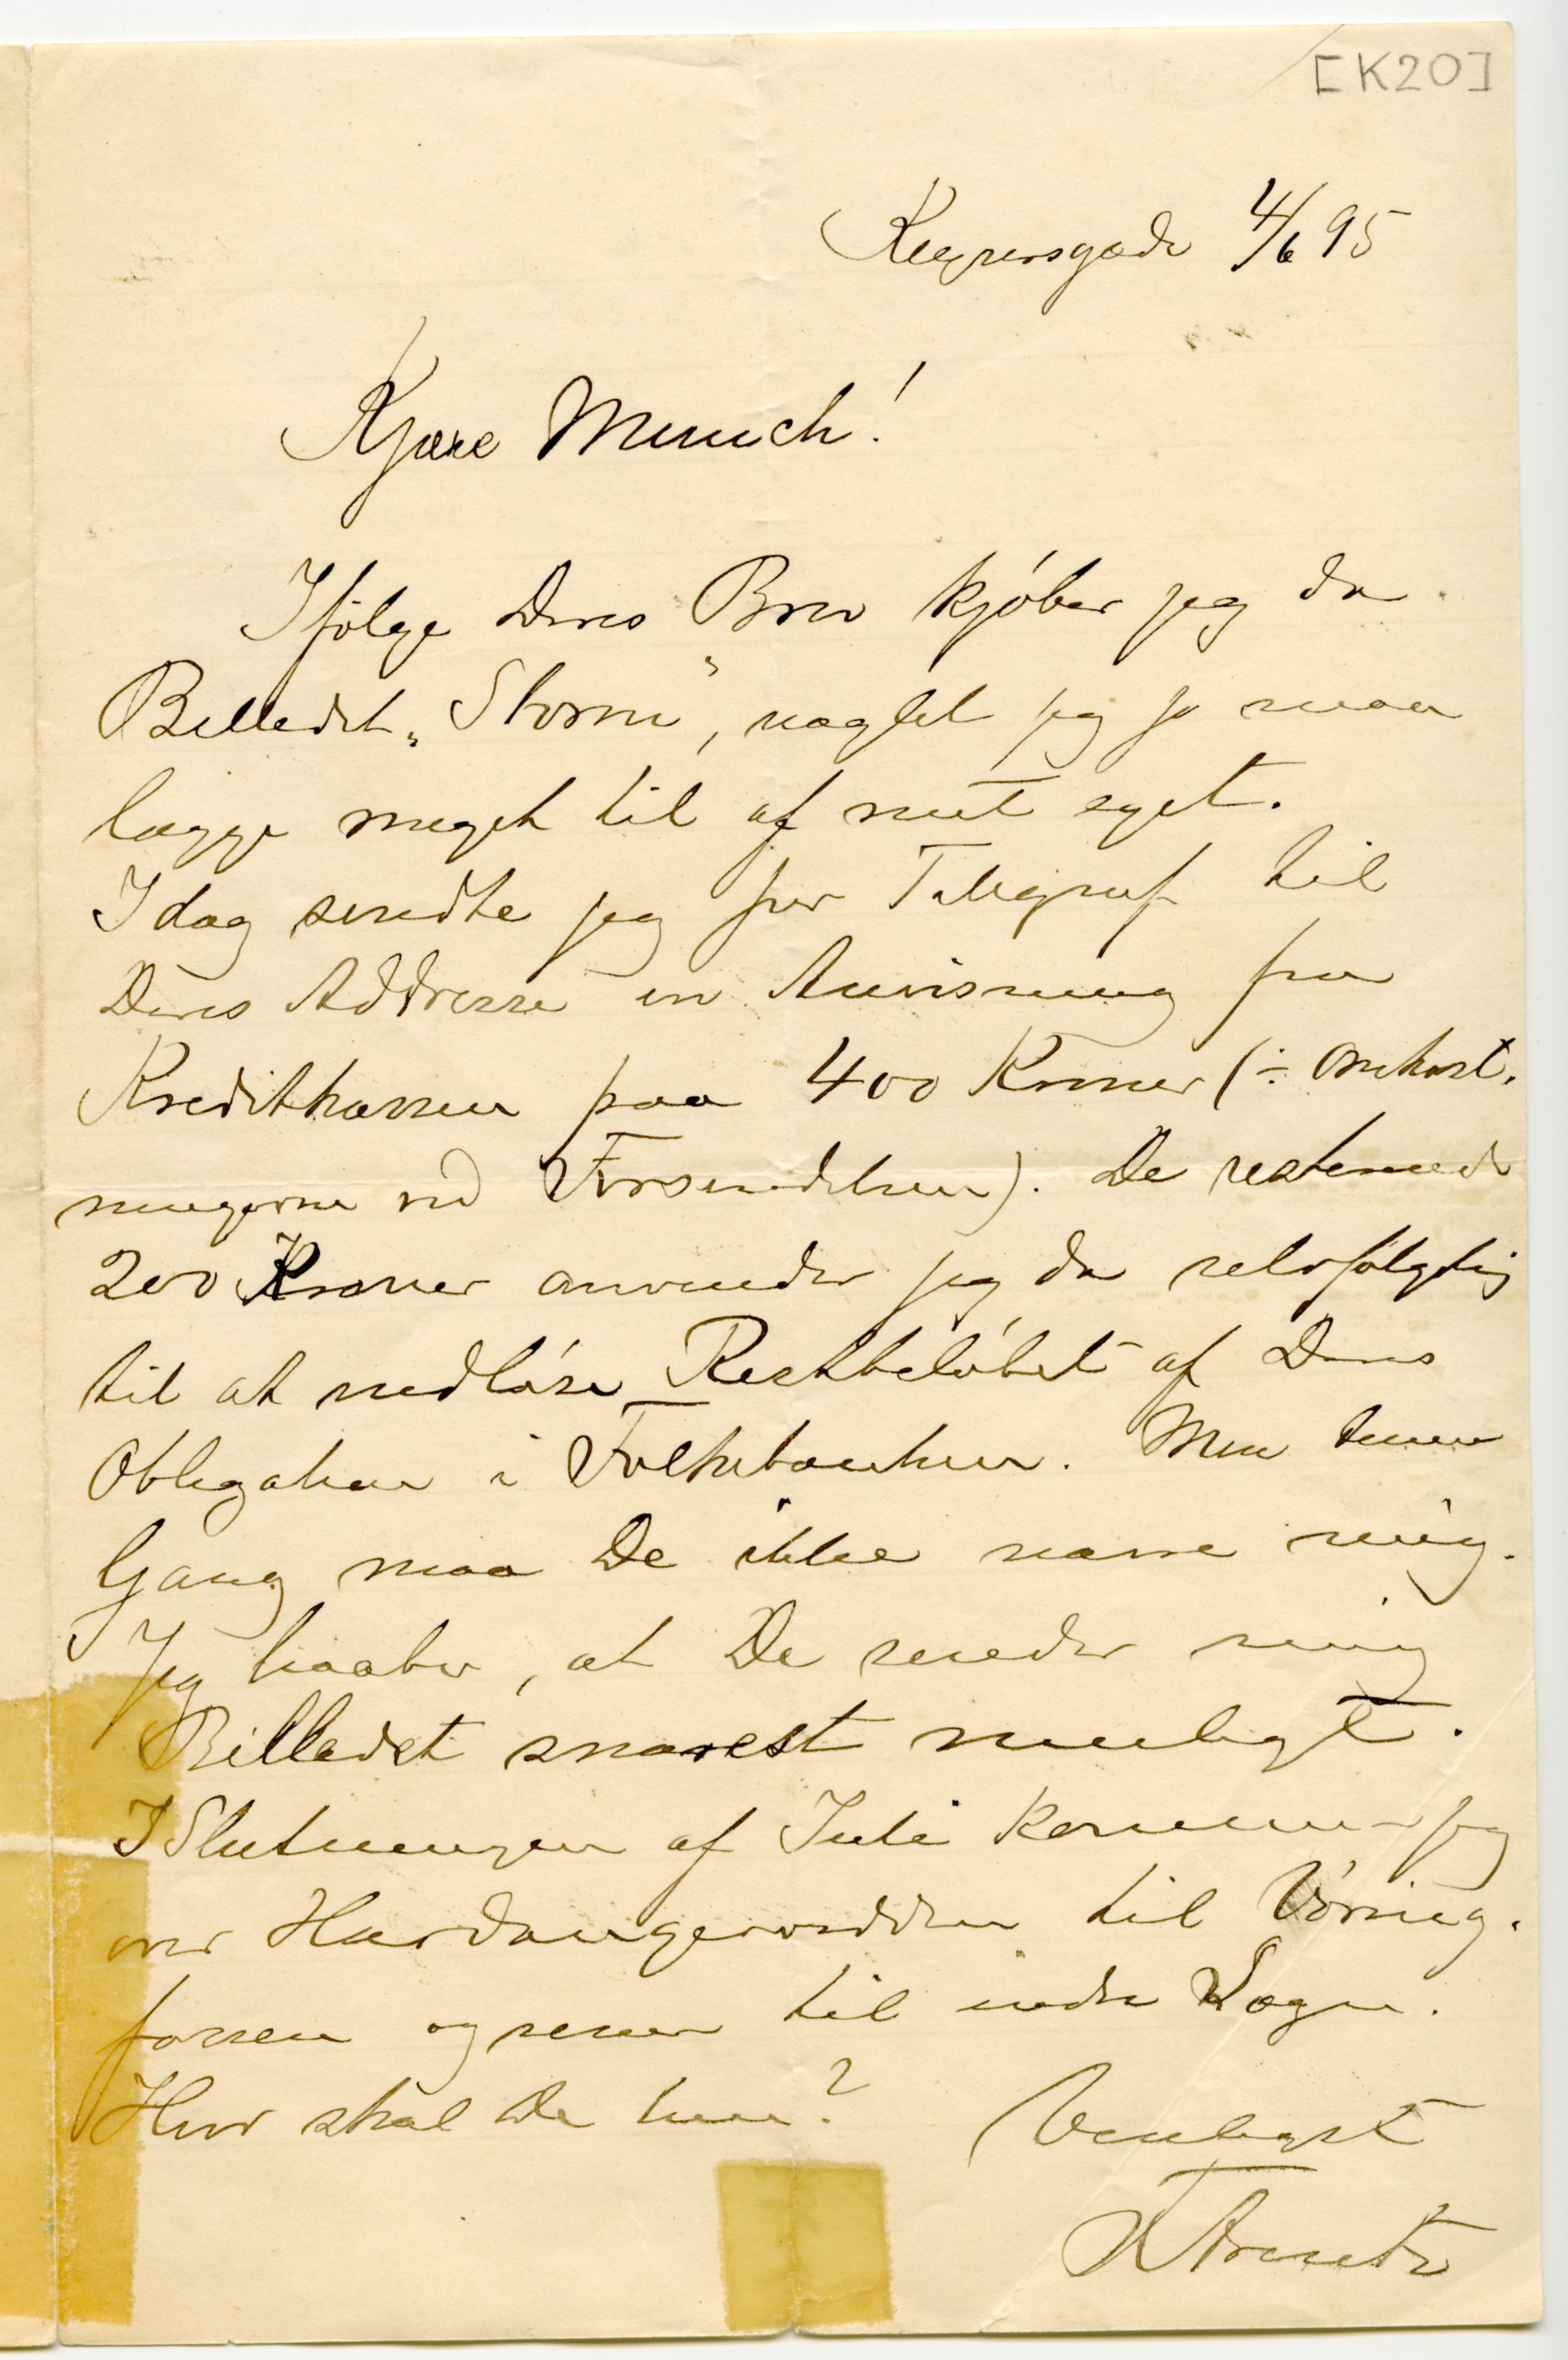 [K20]
Keysersgade 4/6 95
Kjære Munch!
Ifølge Deres Brev kjøber jeg da
Billedet „Storm“, uagtet jeg jo maa
lægge meget til af mit eget.
Idag sendte jeg per Telegraf til
Deres Addresse en Anvisning fra
Kreditkassen paa 400 Kroner (÷ Omkost-
ningerne ved Forsendelsen). De resterende
200 Kroner anvender jeg da selvfølgelig
til at nedløse Restbeløbet af Deres
Obligation i Folkebanken. Men denne
Gang maa De ikke narre mig.
Jeg haaber, at De sender mig
Billedet snarest muligt.
I Slutningen af Juli kommer jeg
over Hardangervidden til Vøring-
fossen og senere til indre Sogn.
Hvor skal De hen? Venligst
Arentz